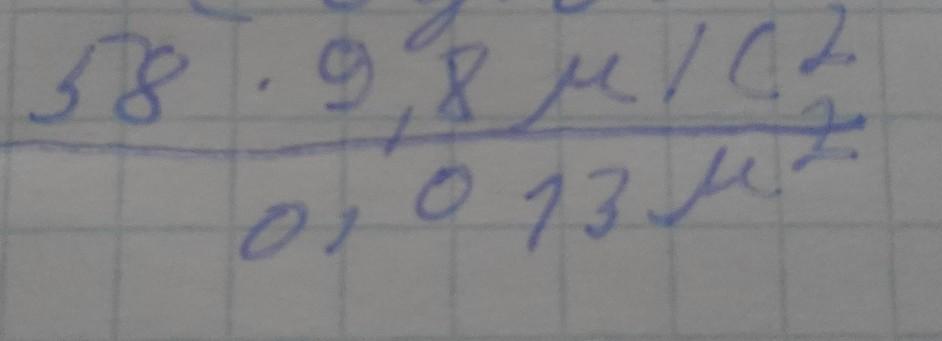 58 · 9,8 м/с²
0,013 м²